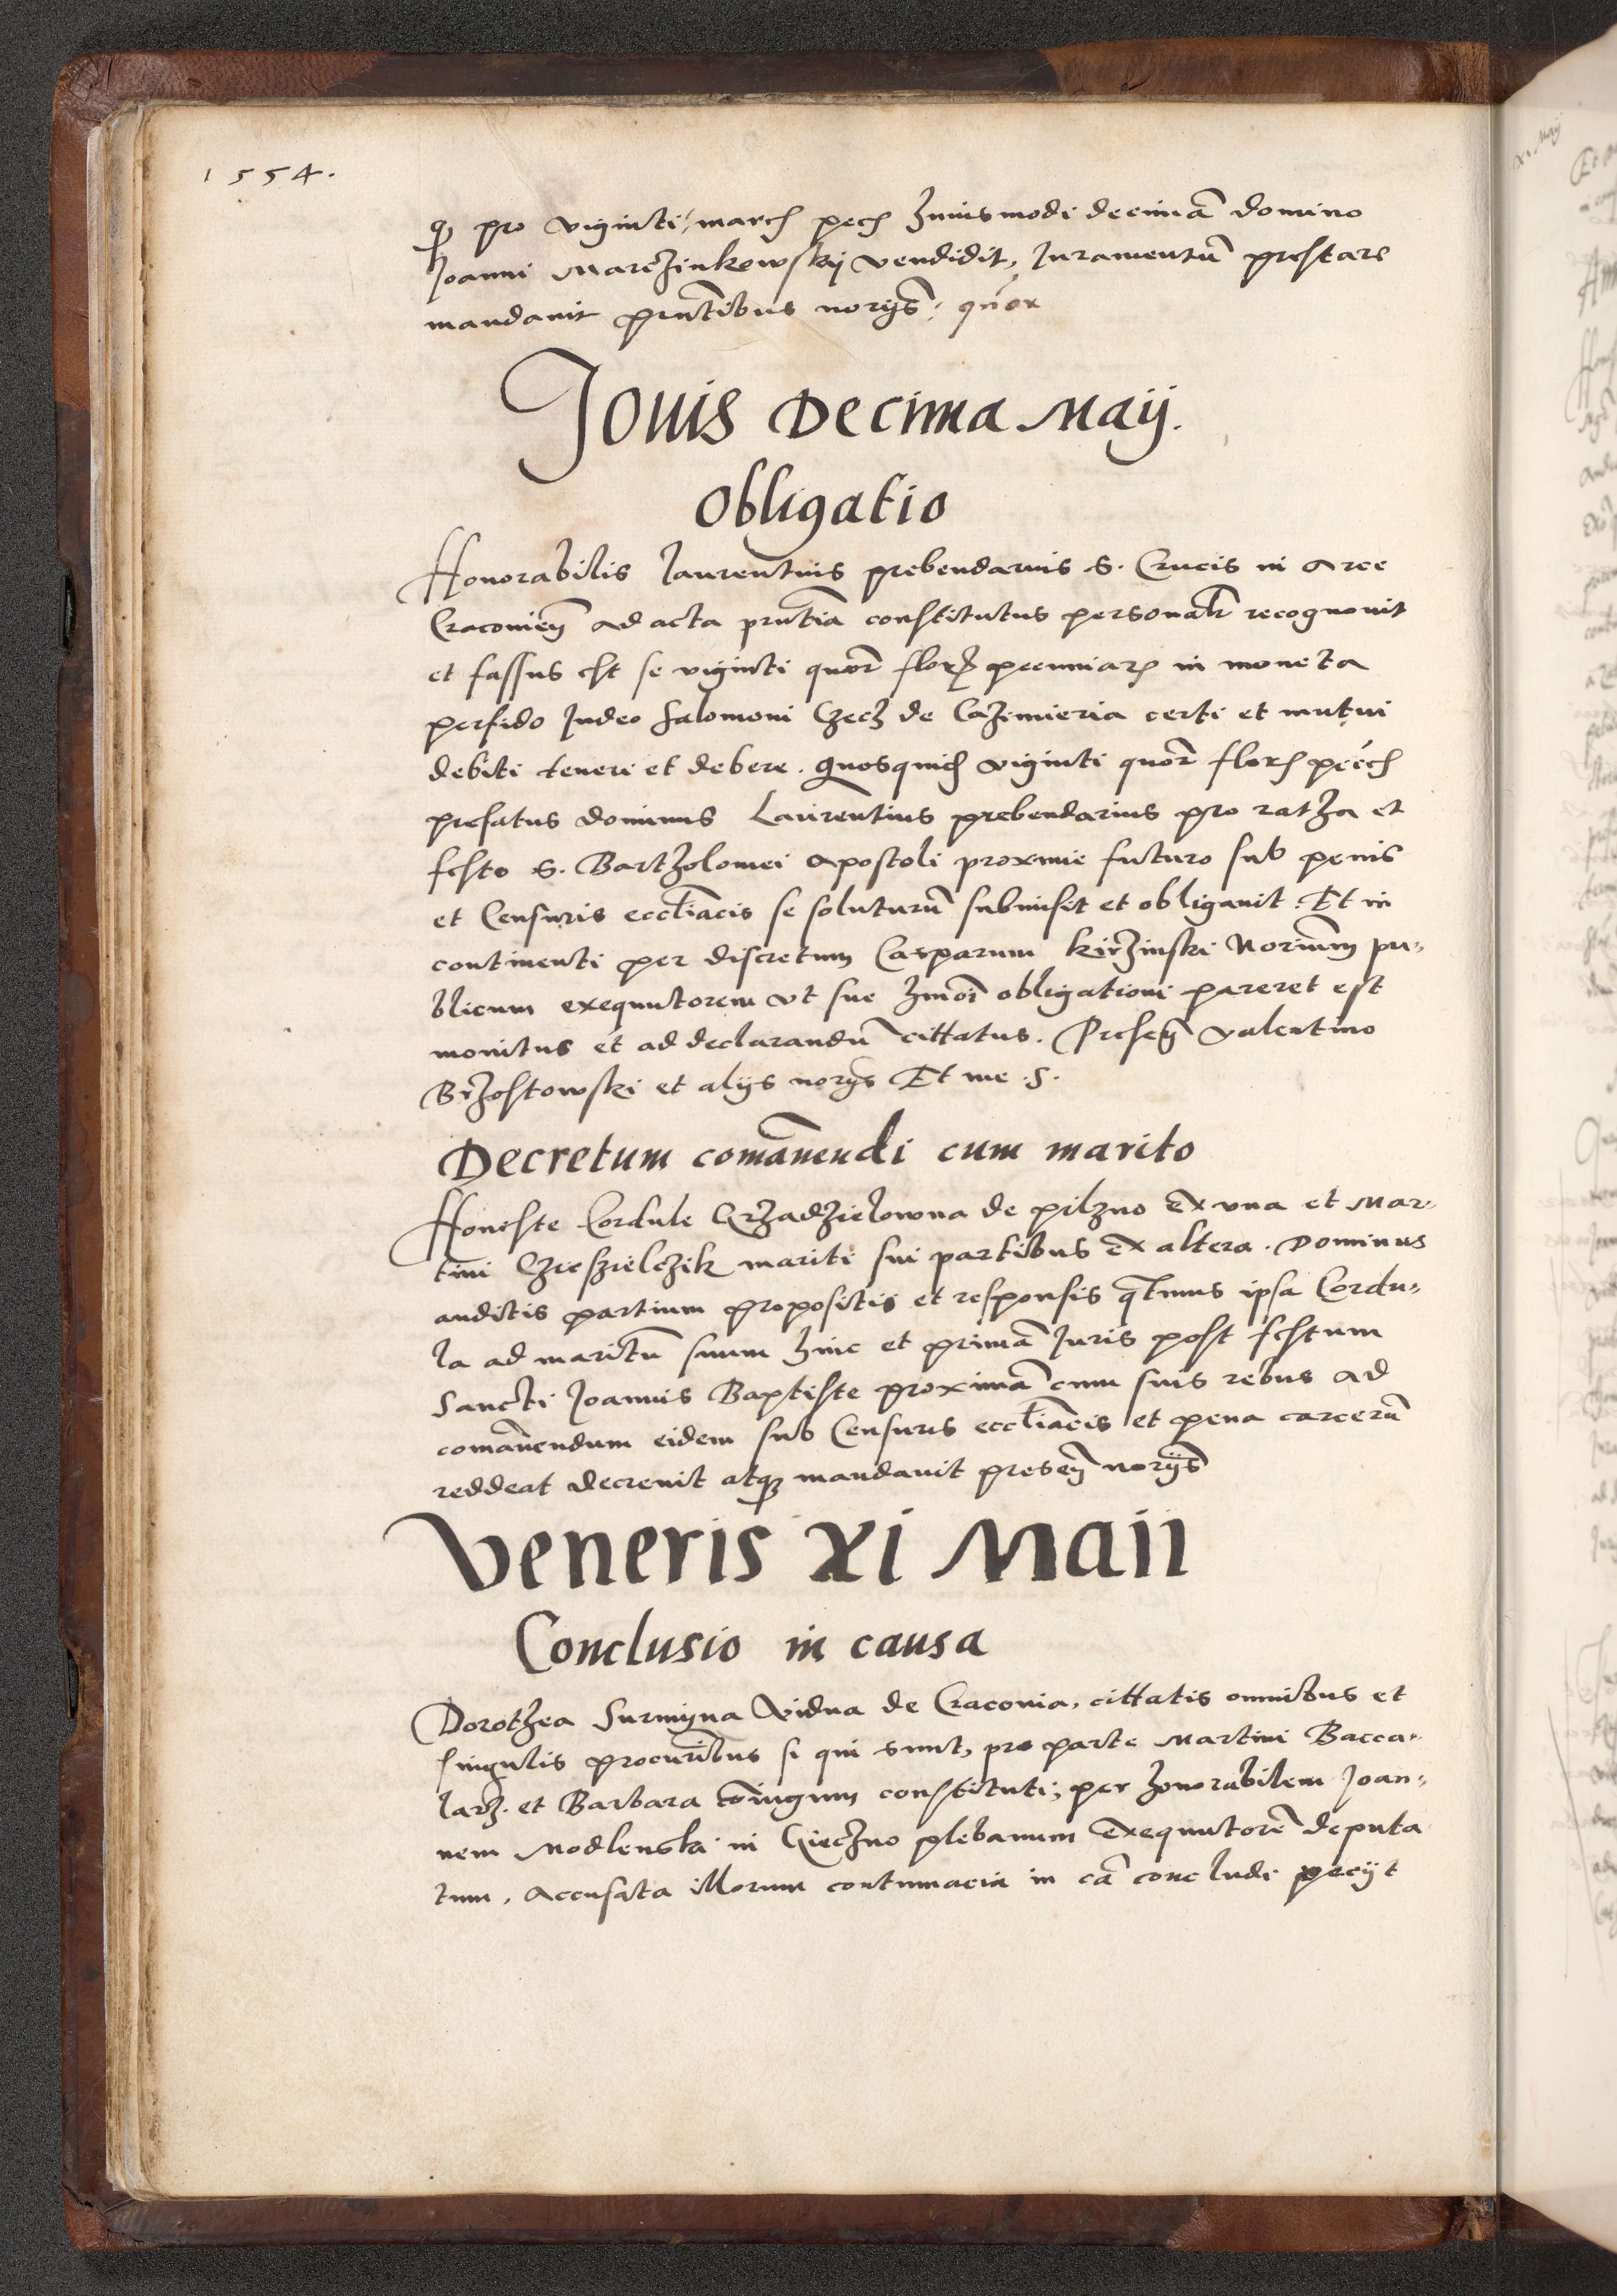 1554.
q pro viginti march pech huiusmodi decimā domino
Joanni Marczinkowskij vendidit, Juramentū prestare
mandauit pn̄tibus norijs
Jouis Decima Maij.
Obligatio
Honorabilis laurentius prebendarius S. Crucis in Arce
Cracovieñ ad acta pn̄tia constitutus personalr̄ recognouit
et fassus est se viginti quor̄ flor pecuniar in moneta
perfido Judeo Salomoni Czech de Cazimieria certi et mutui
debiti teneri et debere. Quosquid viginti quor̄ flor pecc
prefatus dominus Laurentius prebendarius pro ratha et
festo S. Bartholomei Apostoli proxime futuro sub penis
et Censuris eccl̄iacis se soluturū submisit et obligauit. Et in
continenti per discretum Casparum Kirzinski Noriūm pu-
blicum exequutorem vt sue hmōi obligationi pareret est
monitus et ad declarandū cittatus. Preseñ Valentino
Brzostowski et alijs norijs Et me .S.
Decretum comānendi cum marito
Honeste Cordule Grzadzielowna de pilzno Ex vna et Mar-
tini Czieszielczik mariti sui partibus Ex altera. Dominus
auditis partium propositis et responsis qt̄inus ipsa Cordu-
la ad maritū suum hinc et primā Juris post festum
Sancti Joannis Baptiste proximā cum suis rebus ad
comānendum eidem sub Censuris eccl̄iacis et pena carcerū
reddeat decreuit atq mandauit preseñ norijs
Veneris xi Maii
Conclusio in causa
Dorothea Surmijna Vidua de Cracouia, cittatis omnibus et
singulis procur̄ibus si qui sunt, pro parte Martini Bacca-
larz. et Barbara cōiugum constituti; per honorabilem Joan-
nem Modlenska in Gieczno plebanum Exequutorē deputa
tum, Accusata illorum contumacia in cā concludi peciit